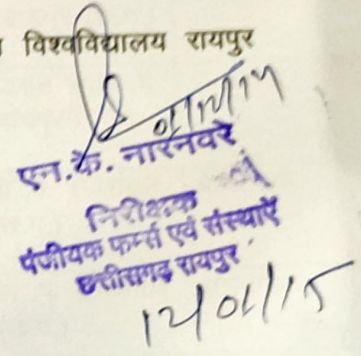 विश्वविद्यालय रायपुर
एन.के. नारनवरे
निरीक्षक
पंजीयक फर्म्स एवं संस्थाएँ
छत्तीसगढ़ रायपुर
12/01/15